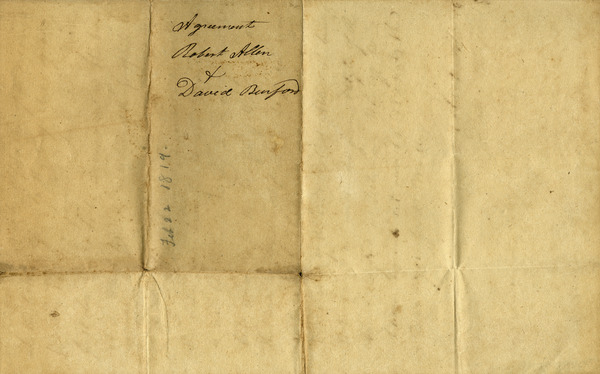 Agreement
Robert Allen
&
David Burford
Feb 22 1819.